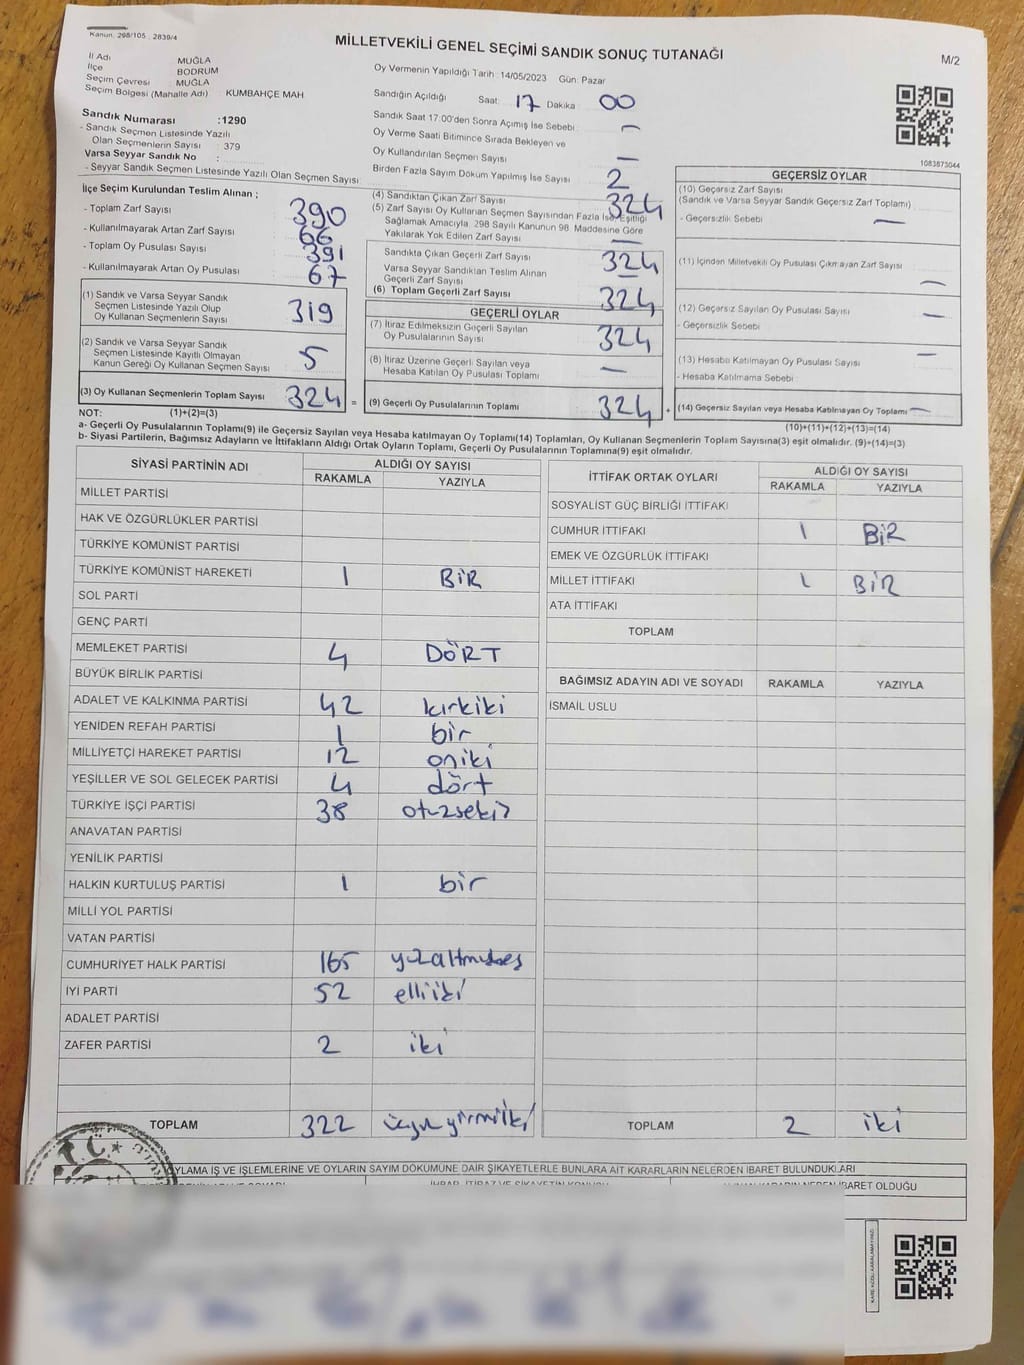 Kanun: 298/105 , 2839/4
MİLLETVEKİLİ GENEL SEÇİMİ SANDIK SONUÇ TUTANAĞI
M/2
İl Adı MUĞLA
İlçe BODRUM
Seçim Çevresi MUĞLA
Seçim Bölgesi (Mahalle Adı) KUMBAHÇE MAH.
Sandık Numarası :1290
- Sandık Seçmen Listesinde Yazılı
Olan Seçmenlerin Sayısı : 379
Varsa Seyyar Sandık No :
- Seyyar Sandık Seçmen Listesinde Yazılı Olan Seçmen Sayısı:
Oy Vermenin Yapıldığı Tarih: 14/05/2023 Gün: Pazar
Sandığın Açıldığı Saat: 17 Dakika 00
Sandık Saat 17.00'den Sonra Açılmış İse Sebebi —
Oy Verme Saati Bitimince Sırada Bekleyen ve
Oy Kullandırılan Seçmen Sayısı —
Birden Fazla Sayım Döküm Yapılmış İse Sayısı 2
1083873044
İlçe Seçim Kurulundan Teslim Alınan ;
- Toplam Zarf Sayısı 390
- Kullanılmayarak Artan Zarf Sayısı 66
- Toplam Oy Pusulası Sayısı 391
- Kullanılmayarak Artan Oy Pusulası 67
(1) Sandık ve Varsa Seyyar Sandık
Seçmen Listesinde Yazılı Olup
Oy Kullanan Seçmenlerin Sayısı 319
(2) Sandık ve Varsa Seyyar Sandık
Seçmen Listesinde Kayıtlı Olmayan
Kanun Gereği Oy Kullanan Seçmen Sayısı 5
(3) Oy Kullanan Seçmenlerin Toplam Sayısı 324 =
(4) Sandıktan Çıkan Zarf Sayısı 324
(5) Zarf Sayısı Oy Kullanan Seçmen Sayısından Fazla İse, Eşitliği
Sağlamak Amacıyla, 298 Sayılı Kanunun 98. Maddesine Göre
Yakılarak Yok Edilen Zarf Sayısı —
Sandıkta Çıkan Geçerli Zarf Sayısı 324
Varsa Seyyar Sandıktan Teslim Alınan
Geçerli Zarf Sayısı —
(6) Toplam Geçerli Zarf Sayısı 324
GEÇERLİ OYLAR
(7) İtiraz Edilmeksizin Geçerli Sayılan
Oy Pusulalarının Sayısı 324
(8) İtiraz Üzerine Geçerli Sayılan veya
Hesaba Katılan Oy Pusulası Toplamı —
(9) Geçerli Oy Pusulalarının Toplamı 324 +
GEÇERSİZ OYLAR
(10) Geçersiz Zarf Sayısı
(Sandık ve Varsa Seyyar Sandık Geçersiz Zarf Toplamı)
- Geçersizlik Sebebi —
(11) İçinden Milletvekili Oy Pusulası Çıkmayan Zarf Sayısı —
(12) Geçersiz Sayılan Oy Pusulası Sayısı —
- Geçersizlik Sebebi
(13) Hesaba Katılmayan Oy Pusulası Sayısı —
- Hesaba Katılmama Sebebi
(14) Geçersiz Sayılan veya Hesaba Katılmayan Oy Toplamı —
NOT: (1)+(2)=(3) (10)+(11)+(12)+(13)=(14)
a- Geçerli Oy Pusulalarının Toplamı(9) ile Geçersiz Sayılan veya Hesaba katılmayan Oy Toplamı(14) Toplamları, Oy Kullanan Seçmenlerin Toplam Sayısına(3) eşit olmalıdır. (9)+(14)=(3)
b- Siyasi Partilerin, Bağımsız Adayların ve İttifakların Aldığı Ortak Oyların Toplamı, Geçerli Oy Pusulalarının Toplamına(9) eşit olmalıdır.
SİYASİ PARTİNİN ADI ALDIĞI OY SAYISI
RAKAMLA YAZIYLA
MİLLET PARTİSİ
HAK VE ÖZGÜRLÜKLER PARTİSİ
TÜRKİYE KOMÜNİST PARTİSİ
TÜRKİYE KOMÜNİST HAREKETİ 1 BİR
SOL PARTİ
GENÇ PARTİ
MEMLEKET PARTİSİ 4 DÖRT
BÜYÜK BİRLİK PARTİSİ
ADALET VE KALKINMA PARTİSİ 42 kırkiki
YENİDEN REFAH PARTİSİ 1 bir
MİLLİYETÇİ HAREKET PARTİSİ 12 oniki
YEŞİLLER VE SOL GELECEK PARTİSİ 4 dört
TÜRKİYE İŞÇİ PARTİSİ 38 otuzsekiz
ANAVATAN PARTİSİ
YENİLİK PARTİSİ
HALKIN KURTULUŞ PARTİSİ 1 bir
MİLLİ YOL PARTİSİ
VATAN PARTİSİ
CUMHURİYET HALK PARTİSİ 165 yüzaltmışbeş
İYİ PARTİ 52 elliiki
ADALET PARTİSİ
ZAFER PARTİSİ 2 iki
TOPLAM 322 üçyüzyirmiiki
İTTİFAK ORTAK OYLARI ALDIĞI OY SAYISI
RAKAMLA YAZIYLA
SOSYALİST GÜÇ BİRLİĞİ İTTİFAKI
CUMHUR İTTİFAKI 1 BİR
EMEK VE ÖZGÜRLÜK İTTİFAKI
MİLLET İTTİFAKI 1 BİR
ATA İTTİFAKI
TOPLAM
BAĞIMSIZ ADAYIN ADI VE SOYADI RAKAMLA YAZIYLA
İSMAİL USLU
TOPLAM 2 iki
T.C.
OYLAMA İŞ VE İŞLEMLERİNE VE OYLARIN SAYIM DÖKÜMÜNE DAİR ŞİKAYETLERLE BUNLARA AİT KARARLARIN NELERDEN İBARET BULUNDUKLARI
İBARET OLDUĞU